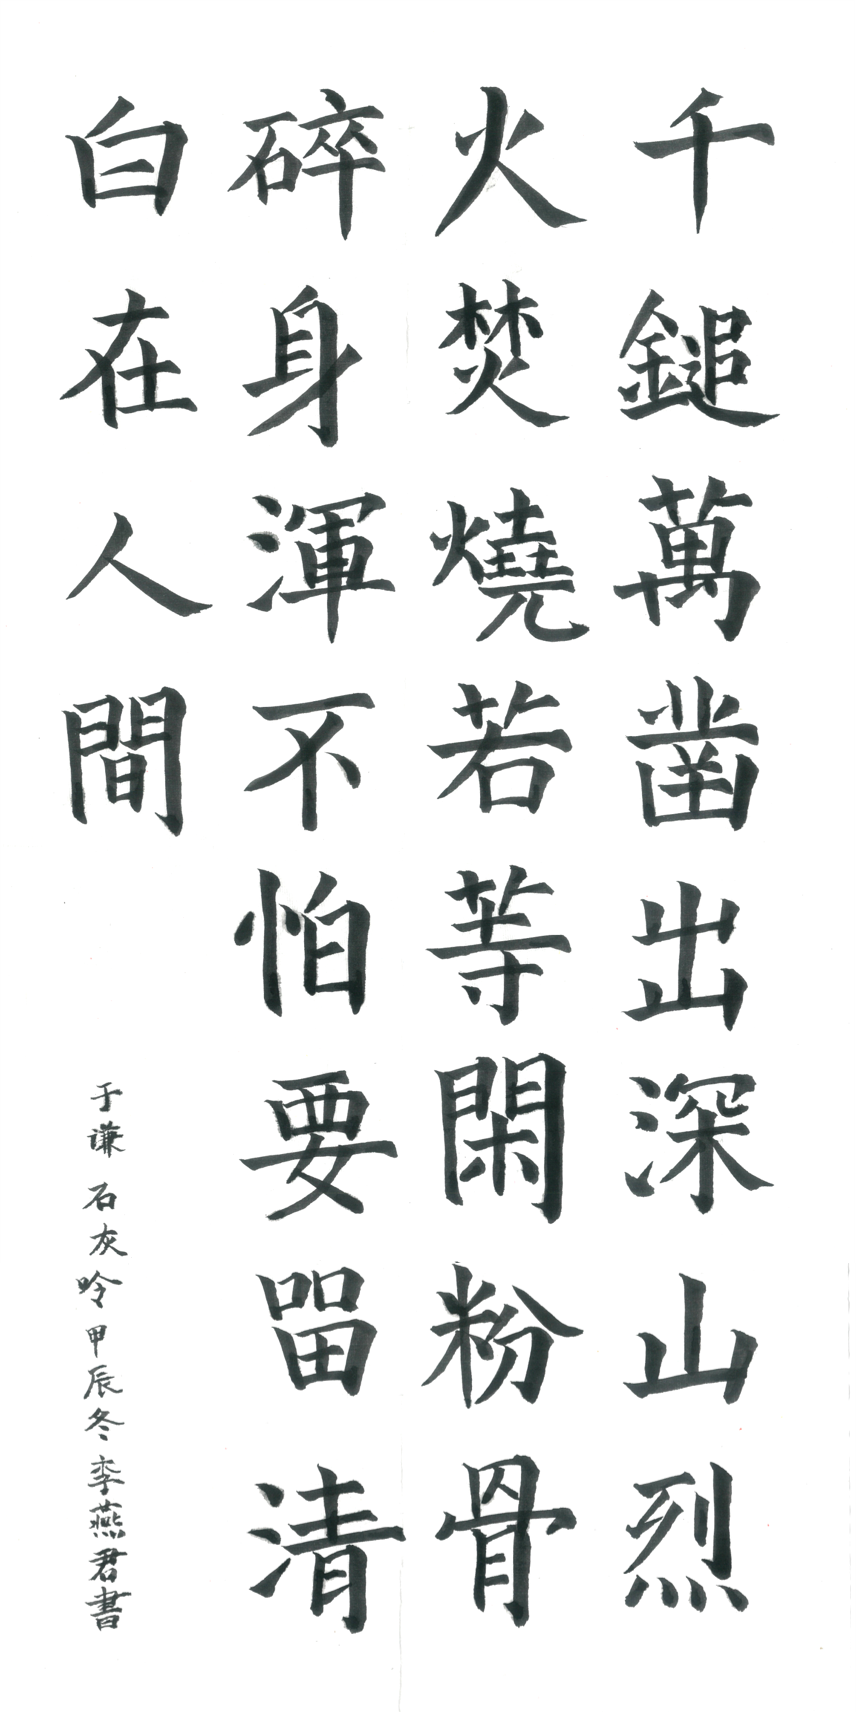 千鎚萬凿出深山烈
火焚燒若等閑粉骨
碎身渾不怕要留清
白在人間
于谦 石灰吟 甲辰冬 李燕君書